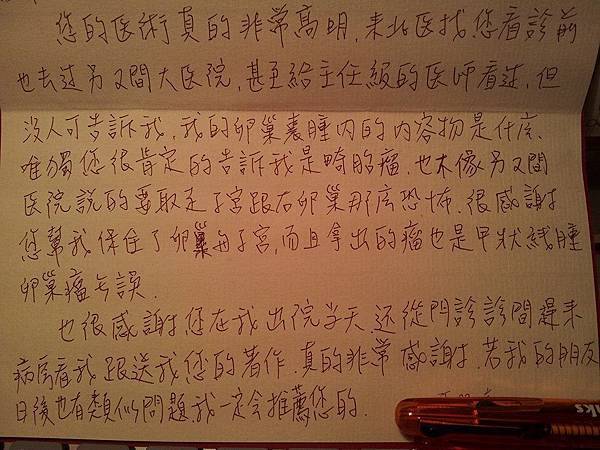 您的医術真的非常高明,来北医找您看診前
也去过另又間大医院,甚至給主任級的医师看过,但
没人可告訴我,我的卵巢囊腫内的内容物是什広、
唯獨您很肯定的告訴我是畸胎瘤,也不像另又間
医院説的要取走子宮跟右卵巢那広恐怖,很感謝
您幫我保住了卵巢与子宮,而且拿出的瘤也是甲状腺腫
卵巢瘤无誤.
也很感謝您在我出院当天还從門診診間趕来
病房看我跟送我您的著作,真的非常感謝,若我的朋友
日後也有類似問題,我一定会推薦您的.